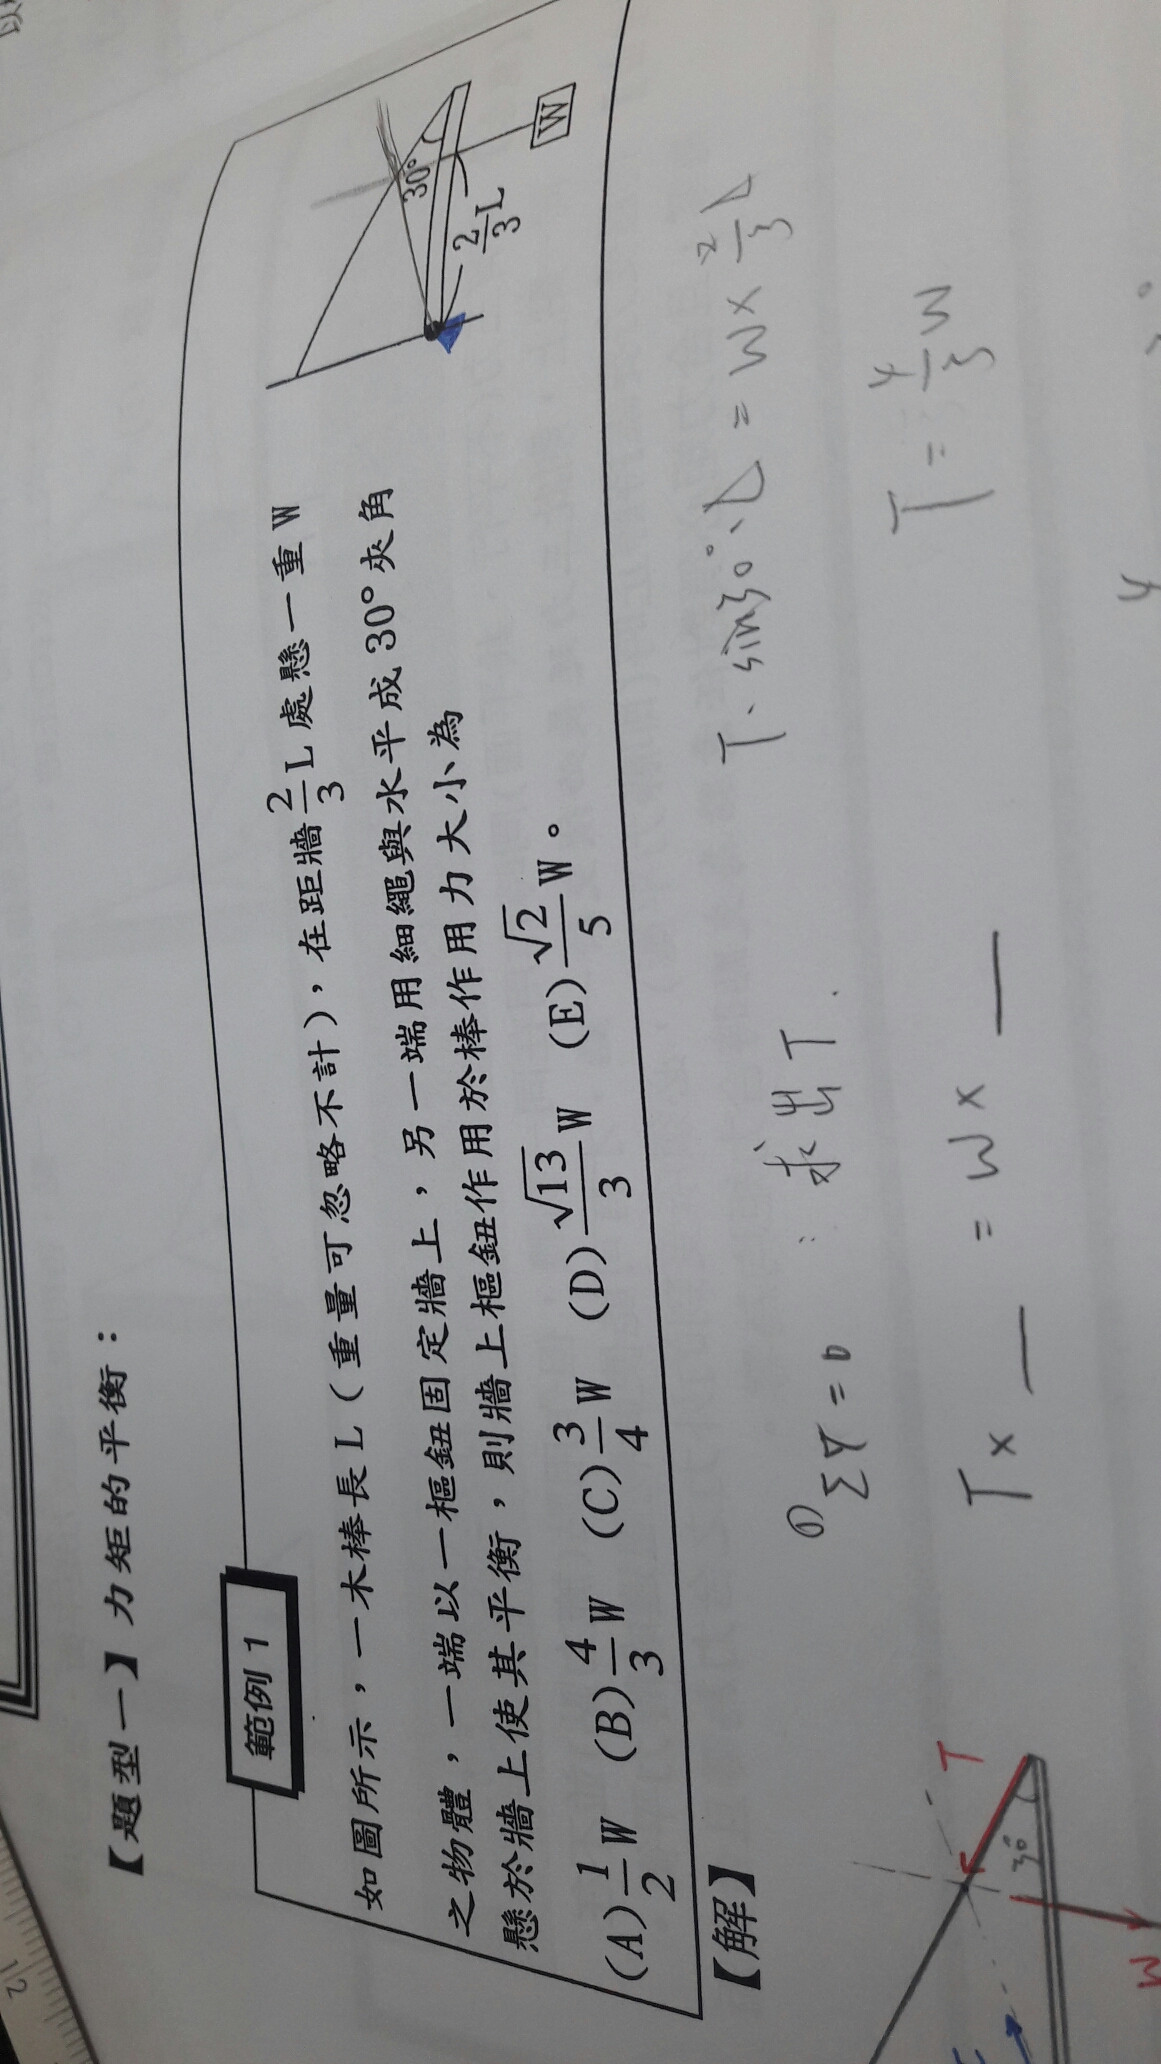 【題型一】力矩的平衡：
範例 1
如圖所示，一木棒長L（重量可忽略不計），在距牆$\frac{2}{3}$L處懸一重W
之物體，一端以一樞鈕固定牆上，另一端用細繩與水平成30°夾角
懸於牆上使其平衡，則牆上樞鈕作用於棒作用力大小為
(A)$\frac{1}{2}$W (B)$\frac{4}{3}$W (C)$\frac{3}{4}$W (D)$\frac{\sqrt{13}}{3}$W (E)$\frac{\sqrt{2}}{5}$W。
30°
$\frac{2}{3}$L
W
【解】
求出T.
T × __ = W × __
T · sin30° · L = W × $\frac{2}{3}$L
T = $\frac{4}{3}$W
T
30
W
12